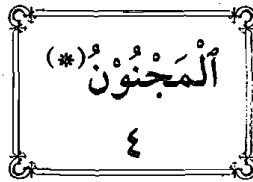 اَلْمَجْنُوْنُ(*)
٤